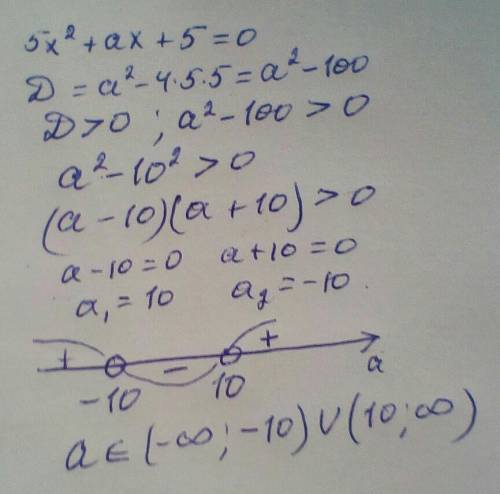 5x² + ax + 5 = 0
D = a² - 4·5·5 = a² - 100
D > 0 ; a² - 100 > 0
a² - 10² > 0
(a - 10)(a + 10) > 0
a - 10 = 0 a + 10 = 0
a₁ = 10 a₂ = -10.
+ - +
-10 10 a
a ∈ (-∞; -10) ∪ (10; ∞)